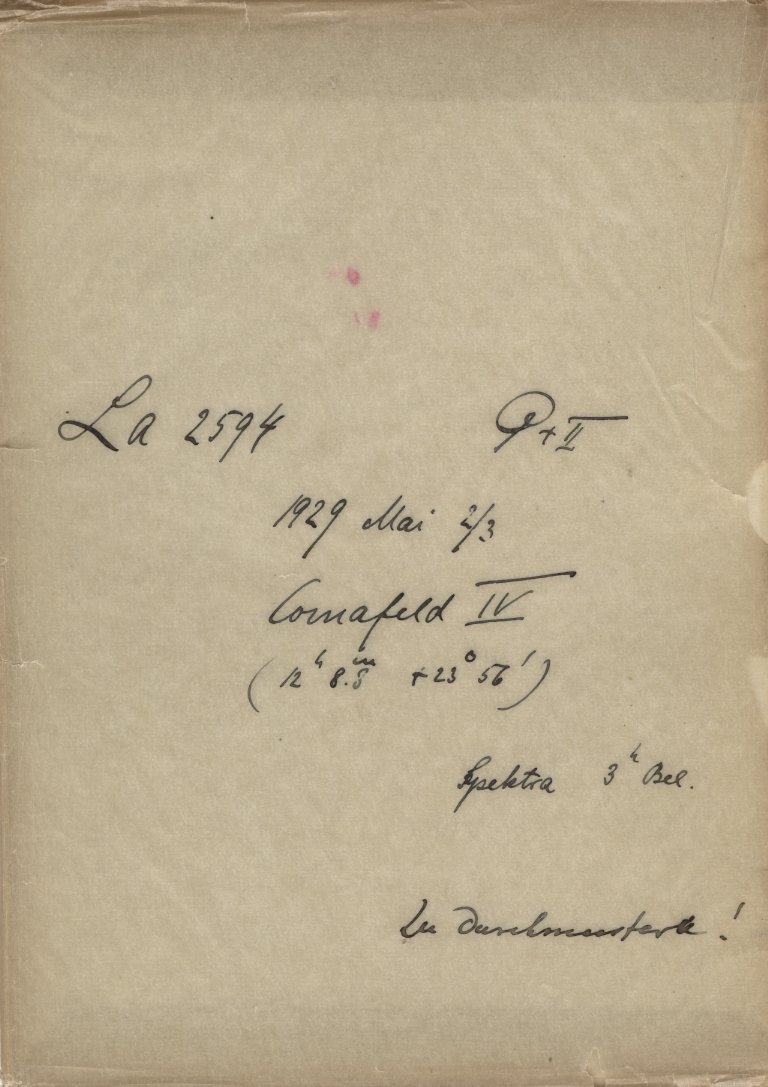 La 2594 P + II
1929 Mai 2/3
Comafeld IV
(12ʰ 8.8ᵐ +23° 56')
Spektra 3ʰ Bel.
Zu Durchmustern!